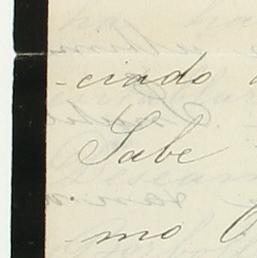 -ciado
Sabe
-mo